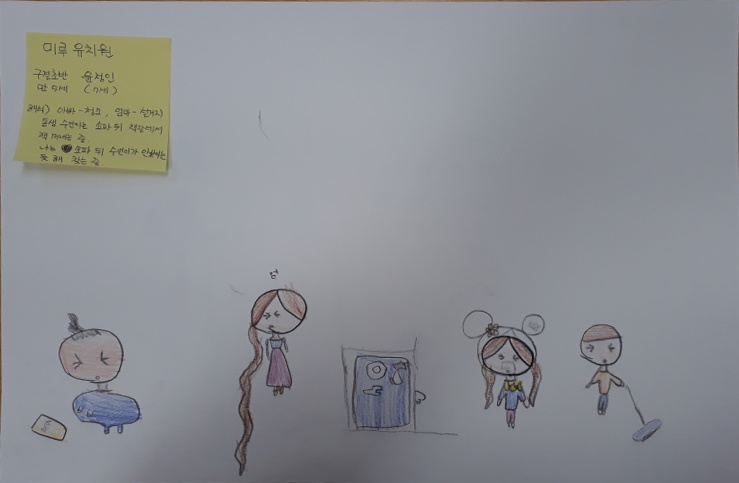 미루 유치원
구절초반 윤정인
만 5세 (7세)
해석) 아빠-청소, 엄마-설거지
동생 수연이는 소파 뒤 책장에서
책 꺼내는 중.
나는 소파 뒤 수연이가 안보이는
듯 해 찾는 중
엄